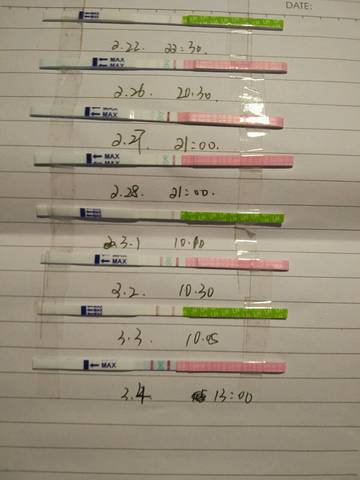 DATE:
2.22. 22:30.
MAX
2.26. 20.30
2.27. 21:00.
MAX
MAX
2.28. 21:00.
3.1 10.10
MAX
3.2. 10.30
3.3. 10.05
MAX
3.4 13:00